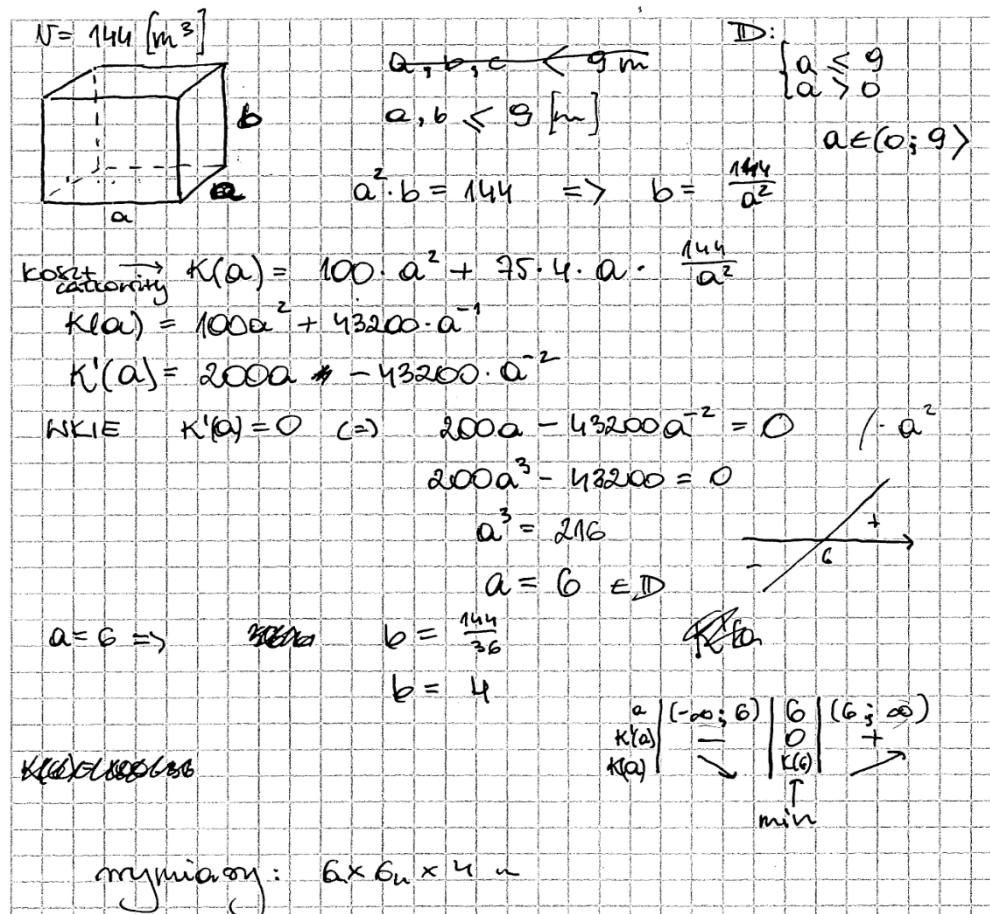 V = 144 [m³]
b
a
a
a, b, c < 9 m
a, b ≤ 9 [m]
D:
{ a ≤ 9
{ a > 0
a ∈ (0; 9⟩
a² · b = 144 => b = 144/a²
koszt całkowity → K(a) = 100 · a² + 75 · 4 · a · 144/a²
K(a) = 100a² + 43200 · a⁻¹
K'(a) = 200a - 43200 · a⁻²
WKIE K'(a) = 0 (=) 200a - 43200a⁻² = 0 / · a²
200a³ - 43200 = 0
a³ = 216
- 6 +
a = 6 ∈ D
a = 6 => b = 144/36
b = 4
a | (-∞; 6) | 6 | (6; ∞)
K'(a) | - | 0 | +
K(a) | ↘ | K(6) | ↗
↑
min
wymiary: 6 x 6 x 4